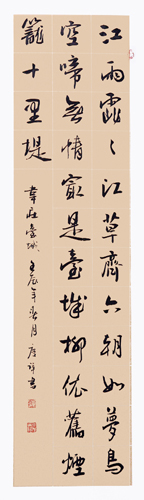 江雨霏〻江草齊六朝如夢鳥
空啼無情最是臺城柳依舊煙
籠十里堤
韋莊臺城 壬辰年